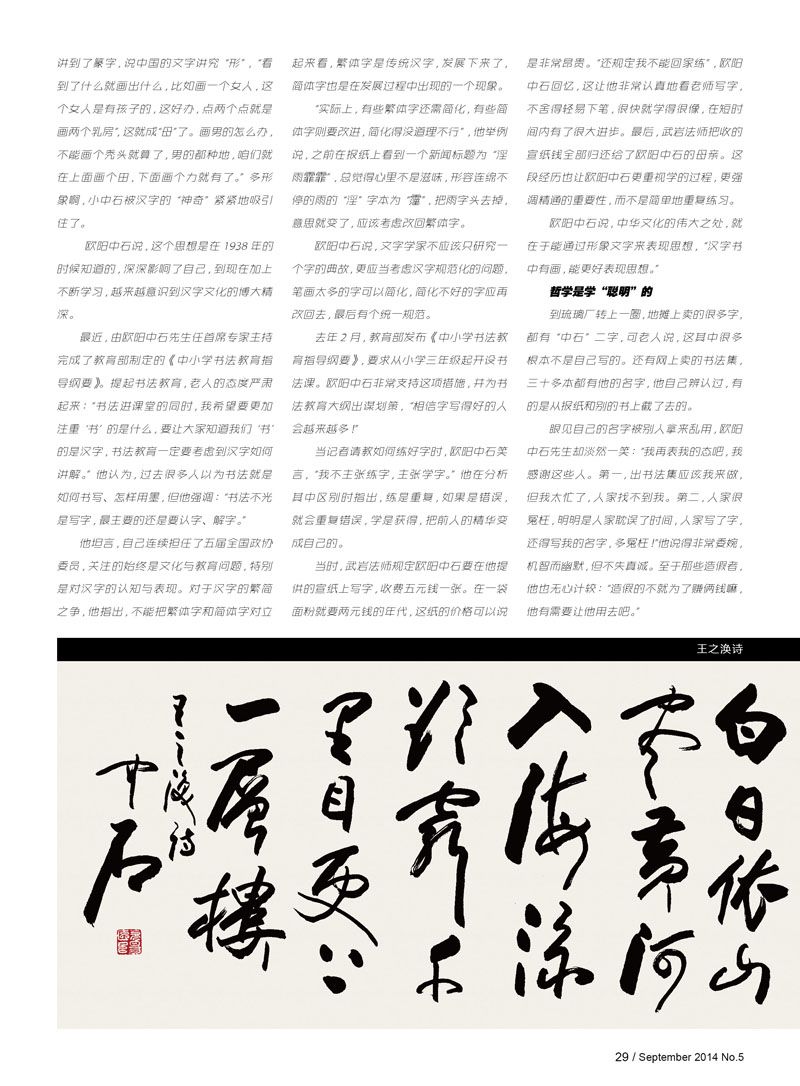 讲到了篆字，说中国的文字讲究“形”，“看
到了什么就画出什么，比如画一个女人，这
个女人是有孩子的，这好办，点两个点就是
画两个乳房”，这就成“母”了。画男的怎么办，
不能画个秃头就算了，男的都种地，咱们就
在上面画个田，下面画个力就有了。”多形
象啊，小中石被汉字的“神奇”紧紧地吸引
住了。
欧阳中石说，这个思想是在 1938 年的
时候知道的，深深影响了自己，到现在加上
不断学习，越来越意识到汉字文化的博大精
深。
最近，由欧阳中石先生任首席专家主持
完成了教育部制定的《中小学书法教育指
导纲要》。提起书法教育，老人的态度严肃
起来：“书法进课堂的同时，我希望要更加
注重‘书’的是什么，要让大家知道我们‘书’
的是汉字，书法教育一定要考虑到汉字如何
讲解。”他认为，过去很多人以为书法就是
如何书写、怎样用墨，但他强调：“书法不光
是写字，最主要的还是要认字、解字。”
他坦言，自己连续担任了五届全国政协
委员，关注的始终是文化与教育问题，特别
是对汉字的认知与表现。对于汉字的繁简
之争，他指出，不能把繁体字和简体字对立
起来看，繁体字是传统汉字，发展下来了，
简体字也是在发展过程中出现的一个现象。
“实际上，有些繁体字还需简化，有些简
体字则要改进，简化得没道理不行”，他举例
说，之前在报纸上看到一个新闻标题为“淫
雨霏霏”，总觉得心里不是滋味，形容连绵不
停的雨的“淫”字本为“霪”，把雨字头去掉，
意思就变了，应该考虑改回繁体字。
欧阳中石说，文字学家不应该只研究一
个字的典故，更应当考虑汉字规范化的问题，
笔画太多的字可以简化，简化不好的字应再
改回去，最后有个统一规范。
去年 2 月，教育部发布《中小学书法教
育指导纲要》，要求从小学三年级起开设书
法课。欧阳中石非常支持这项措施，并为书
法教育大纲出谋划策，“相信字写得好的人
会越来越多！”
当记者请教如何练好字时，欧阳中石笑
言，“我不主张练字，主张学字。”他在分析
其中区别时指出，练是重复，如果是错误，
就会重复错误，学是获得，把前人的精华变
成自己的。
当时，武岩法师规定欧阳中石要在他提
供的宣纸上写字，收费五元钱一张。在一袋
面粉就要两元钱的年代，这纸的价格可以说
是非常昂贵。“还规定我不能回家练”，欧阳
中石回忆，这让他非常认真地看老师写字，
不舍得轻易下笔，很快就学得很像，在短时
间内有了很大进步。最后，武岩法师把收的
宣纸钱全部归还给了欧阳中石的母亲。这
段经历也让欧阳中石更重视学的过程，更强
调精通的重要性，而不是简单地重复练习。
欧阳中石说，中华文化的伟大之处，就
在于能通过形象文字来表现思想，“汉字书
中有画，能更好表现思想。”
哲学是学“聪明”的
到琉璃厂转上一圈，地摊上卖的很多字，
都有“中石”二字，可老人说，这其中很多
根本不是自己写的。还有网上卖的书法集，
三十多本都有他的名字，他自己辨认过，有
的是从报纸和别的书上截了去的。
眼见自己的名字被别人拿来乱用，欧阳
中石先生却淡然一笑：“我再表我的态吧，我
感谢这些人。第一，出书法集应该我来做，
但我太忙了，人家找不到我。第二，人家很
冤枉，明明是人家耽误了时间，人家写了字，
还得写我的名字，多冤枉！”他说得非常委婉，
机智而幽默，但不失真诚。至于那些造假者，
他也无心计较：“造假的不就为了赚俩钱嘛，
他有需要让他用去吧。”
王之涣诗
白日依山
尽黄河
入海流
欲穷千
里目更上
一层楼
王之涣诗
中石
29 / September 2014 No.5